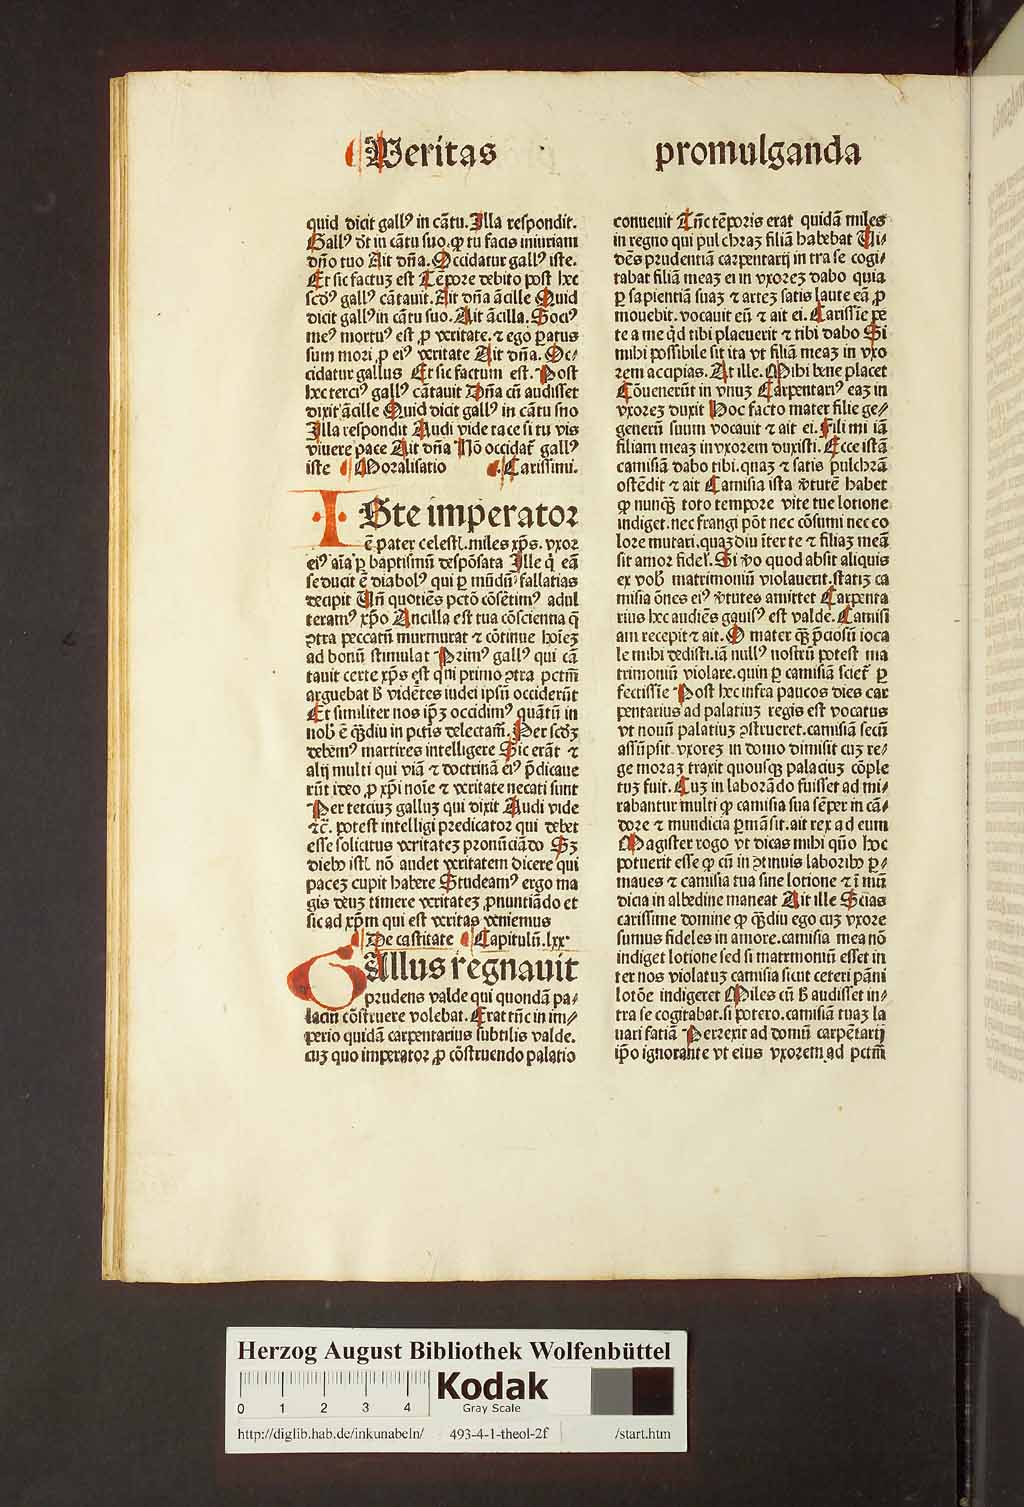 Veritas promulganda
quid dicit gallꝰ in cãtu. Illa respondit.
Gallꝰ dt̃ in cãtu suo. ꝙ tu facis iniuriam
dño tuo Ait dña. Occidatur gallꝰ iste.
Et sic factuꝫ est Tẽpore debito post hec
scd̃ꝰ gallꝰ cãtauit. Ait dña ãcille Quid
dicit gallꝰ in cãtu suo. Ait ãcilla. Sociꝰ
meꝰ mortuꝰ est ꝓ veritate. ⁊ ego ꝑatus
sum mori ꝓ eiꝰ veritate Ait dña. Oc⸗
cidatur gallus Et sic factum est. Post
hec terciꝰ gallꝰ cãtauit Dña cũ audisset
dixit ãcille Quid dicit gallꝰ in cãtu sno
Illa respondit Audi vide tace si tu vis
viuere pace Ait dña Nõ occidat̃ gallꝰ
iste Moralisatio . Carissimi.
ISte imperator
ẽ pater celestꝭ. miles xp̃s. vxor
eiꝰ aĩa ꝑ baptismũ despõsata Ille q̃ eã
seducit ẽ diabolꝰ qui ꝑ mũdũ fallatias
decipit Vñ quotiẽs pctõ cõsẽtimꝰ adul
teramꝰ xp̃o Ancilla est tua cõscienna q̃
ꝯtra peccatũ murmurat ⁊ cõtinue hoĩeꝫ
ad bonũ stimulat Primꝰ gallꝰ qui cã
tauit certe xp̃s est qui primo ꝯtra pctm̃
arguebat ẞ vidẽtes iudei ipsũ occiderũt
Et similiter nos ip̃ꝫ occidimꝰ quãtũ in
nob̃ ẽ qꝫdiu in pctis delectam̃. Per scd̃ꝫ
debemꝰ martires intelligere Sic erãt ⁊
alij multi qui viã ⁊ doctrinã eiꝰ p̃dicaue
rũt ideo ꝓ xp̃i noĩe ⁊ veritate necati sunt
Per tercius galluꝫ qui dixit Audi vide
⁊c̃. potest intelligi predicator qui debet
esse solicitus veritateꝫ pronũciãdo Sꝫ
dieb̃ istꝭ nõ audet veritatem dicere qui
paceꝫ cupit habere Studeamꝰ ergo ma
gis deuꝫ timere veritateꝫ ꝓnuntiãdo et
sic ad xp̃m qui est veritas veniemus
De castitate Capitulũ. lxx
GAllus regnauit
prudens valde qui quondã pa⸗
laciũ cõstruere volebat. Erat tũc in im⸗
perio quidã carpentarius subtilis valde.
cuꝫ quo imperator ꝓ cõstruendo palatio
conueuit Tũc tẽporis erat quidã miles
in regno qui pulchraꝫ filiã habebat Vi⸗
dẽs prudentiã carpentarij intra se cogi⸗
tabat filiã meaꝫ ei in vxoreꝫ dabo quia
ꝑ sapientiã suaꝫ ⁊ arteꝫ satis laute eã ꝓ
mouebit. vocauit eũ ⁊ ait ei. Carissĩe pe
te a me q̃d tibi placuerit ⁊ tibi dabo Si
mihi possibile sit ita vt filiã meaꝫ in vxo
rem accipias. At ille. Mihi bene placet
Cõuenerũt in vnuꝫ Carpentariꝰ eaꝫ in
vxoreꝫ duxit Hoc facto mater filie ge⸗
generũ suum vocauit ⁊ ait ei. Fili mi iã
filiam meaꝫ in vxorem duxisti. Ecce istã
camisiã dabo tibi. quaꝫ ⁊ satis pulchrã
ostẽdit ⁊ ait Camisia ista v̾tutẽ habet
ꝙ nunqꝫ toto tempore vite tue lotione
indiget. nec frangi põt nec cõsumi nec co
lore mutari. quaꝫ diu ĩter te ⁊ filiaꝫ meã
sit amor fidel̾. Si v̾o quod absit aliquis
ex vob̃ matrimoniũ violauerit. statiꝫ ca
misia õnes eiꝰ v̾tutes amittet Carpenta
rius hec audiẽs gauisꝰ est valde. Camisi
am recepit ⁊ ait. O mater qꝫ p̃ciosũ ioca
le mihi dedisti. iã nullꝰ nostrũ potest ma
trimoniũ violare. quin ꝑ camisiã sciet̃ ꝑ
fectissĩe Post hec infra paucos dies car
pentarius ad palatiuꝫ regis est vocatus
vt nouũ palatiuꝫ ꝯstrueret. camisiã secũ
assũpsit. vxoreꝫ in domo dimisit cuꝫ re⸗
ge moraꝫ traxit quousqꝫ palaciuꝫ cõple
tuꝫ fuit. Cuꝫ in laborãdo fuisset ad mi⸗
rabantur multi ꝙ camisia sua sẽper in cã⸗
dore ⁊ mundicia ꝑmãsit. ait rex ad eum
Magister rogo vt dicas mihi quõ hoc
potuerit esse ꝙ cũ in ꝯtinuis laborib̃ ꝑ⸗
maues ⁊ camisia tua sine lotione ⁊ ĩ mũ
dicia in albedine maneat Ait ille Scias
carissime domine ꝙ qꝫdiu ego cuꝫ vxore
sumus fideles in amore. camisia mea nõ
indiget lotione sed si matrmoniũ esset in
ter nos violatuꝫ camisia sicut ceteri pãni
lotõe indigeret Miles cũ ẞ audisset in⸗
tra se cogitabat. si potero. camisiã tuaꝫ la
uari fatiã Perrexit ad domũ carpẽtarij
ip̃o ignorante vt eius vxorem ad pctm̃
Herzog August Bibliothek Wolfenbüttel
0 1 2 3 4
Kodak
Gray Scale
http://diglib.hab.de/inkunabeln/ 493-4-1-theol-2f /start.htm